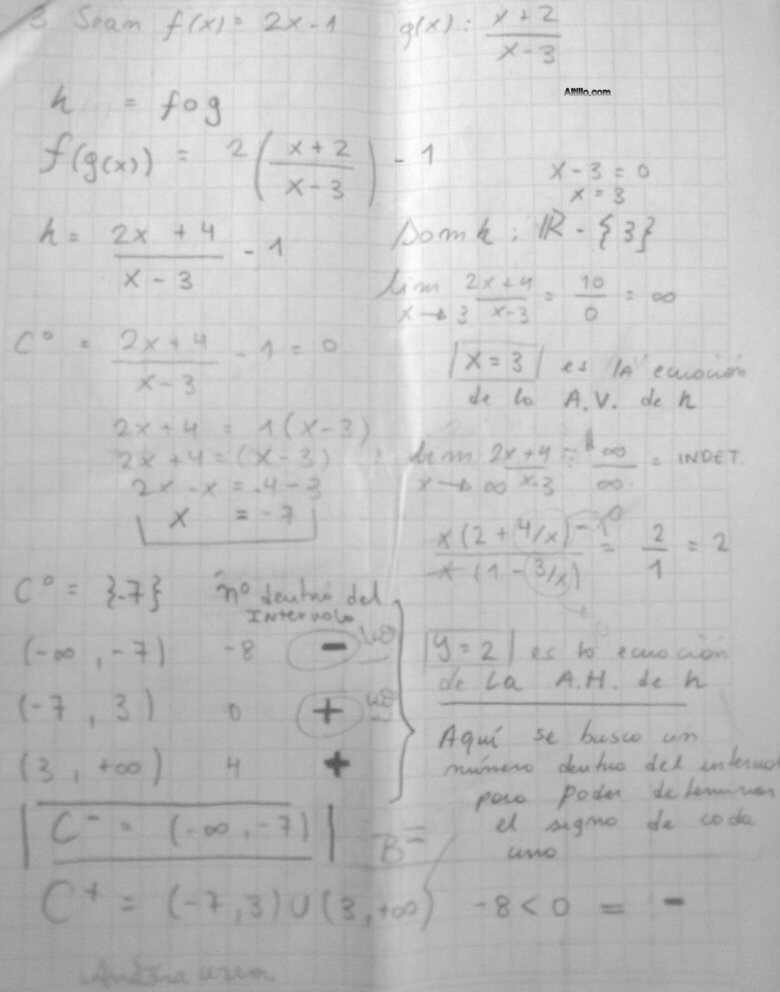 3 Sean f(x) = 2x-1 g(x): x+2 / x-3
Altillo.com
h = fog
f(g(x)) = 2 ( x+2 / x-3 ) - 1
x - 3 = 0
x = 3
h = 2x + 4 / x - 3 - 1
Dom h : IR - {3}
lim x→3 2x+4 / x-3 = 10 / 0 = ∞
C° = 2x+4 / x-3 - 1 = 0
x = 3 es la ecuación
de la A.V. de h
2x+4 = 1(x-3)
2x+4 = (x-3)
2x - x = -4-3
x = -7
lim x→∞ 2x+4 / x-3 = ∞ / ∞ = INDET.
x(2 + 4/x) - 1 / x(1 - 3/x) = 2 / 1 = 2
C° = {-7} nº dentro del
Intervalo
(-∞, -7) -8 -
(-7, 3) 0 +
(3, +∞) 4 +
y = 2 es la ecuación
de la A.H. de h
Aquí se busca un
número dentro del intervalo
para poder determinar
el signo de cada
uno
C⁻ = (-∞, -7)
C⁺ = (-7, 3) U (3, +∞) -8 < 0 = -